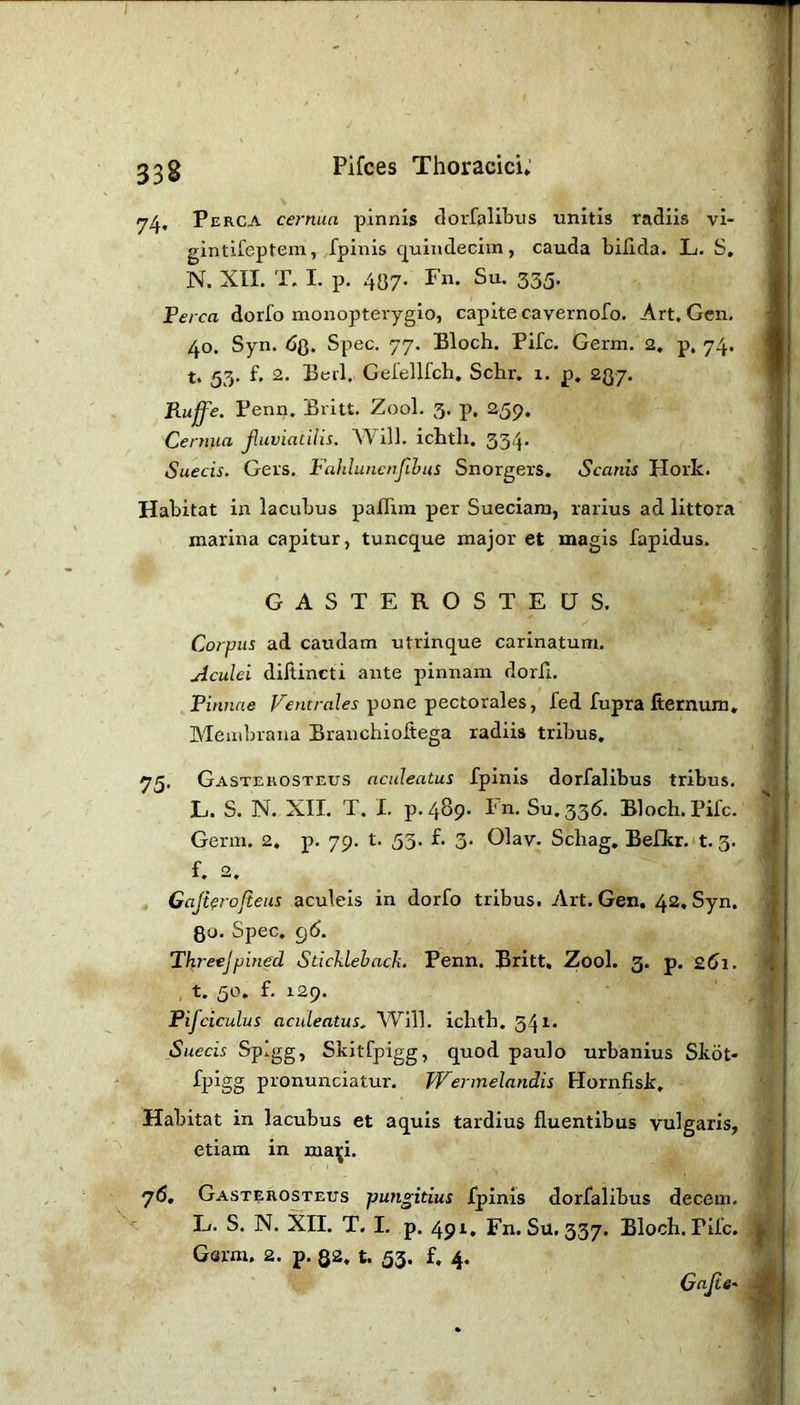 338 Piſces Thoracici.
74. Perca cernua pinnis dorſalibus unitis radiis vi-
gintiſeptem, ſpinis quindecim, cauda bifida. L. S.
N. XII. T. I. p. 487. Fn. Su. 335.
Perca dorſo monopterygio, capite cavernoſo. Art. Gen.
40. Syn. 68. Spec. 77. Bloch. Piſc. Germ. 2. p. 74.
t. 53. f. 2. Berl. Geſellſch. Schr. 1. p. 287.
Ruffe. Penn. Britt. Zool. 3. p. 259.
Cernua fluviatilis. Will. ichth. 334.
Suecis. Gers. Fahlunenſibus Snorgers. Scanis Hork.
Habitat in lacubus paſſim per Sueciam, rarius ad littora
marina capitur, tuncque major et magis ſapidus.
GASTEROSTEUS.
Corpus ad caudam utrinque carinatum.
Aculei diſtincti ante pinnam dorſi.
Pinnae Ventrales pone pectorales, ſed ſupra ſternum.
Membrana Branchioſtega radiis tribus.
75. Gasterosteus aculeatus ſpinis dorſalibus tribus.
L. S. N. XII. T. I. p. 489. Fn. Su. 336. Bloch. Piſc.
Germ. 2. p. 79. t. 53. f. 3. Olav. Schag. Beſkr. t. 3.
f. 2.
Gaſteroſteus aculeis in dorſo tribus. Art. Gen. 42. Syn.
80. Spec. 96.
Threeſpined Stickleback. Penn. Britt. Zool. 3. p. 261.
t. 50. f. 129.
Piſciculus aculeatus. Will. ichth. 341.
Suecis Spigg, Skitſpigg, quod paulo urbanius Sköt-
ſpigg pronunciatur. Wermelandis Hornfisk.
Habitat in lacubus et aquis tardius fluentibus vulgaris,
etiam in mari.
76. Gasterosteus pungitius ſpinis dorſalibus decem.
L. S. N. XII. T. I. p. 491. Fn. Su. 337. Bloch. Piſc.
Germ. 2. p. 82. t. 53. f. 4.
Gaſte-